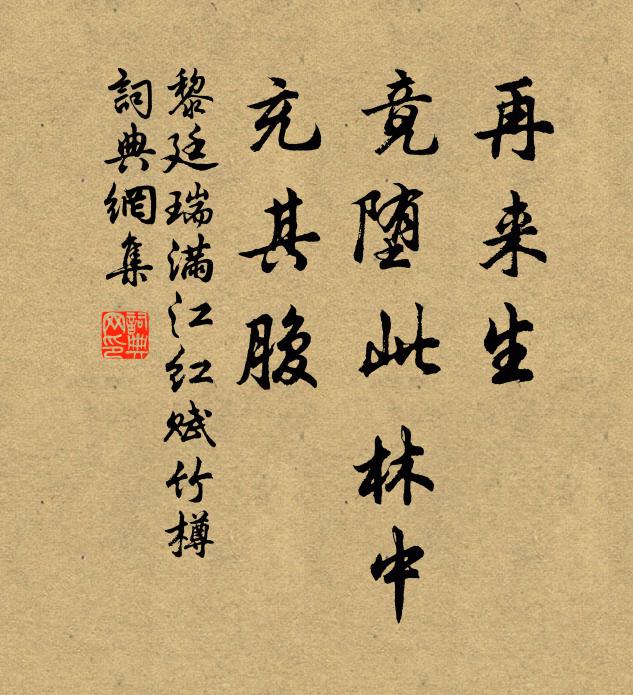 再来生
竟堕此林中
充其腹
黎廷瑞满江红赋竹樽
詞典網集
詞典
网印